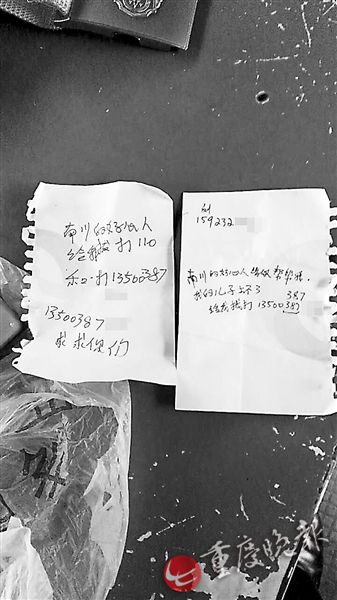 南川的好心人
给我报打110
和打13500387
13500387
求求你们
159232
南川的好心人
我的儿子
387
给我报打13500387
重庆晚报